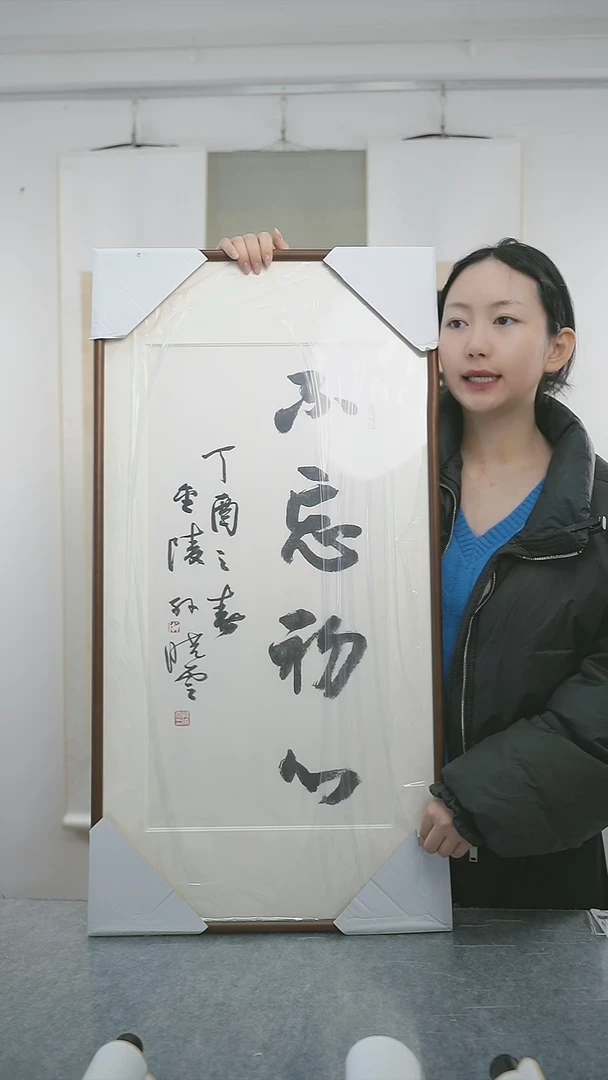 不忘初心
丁酉之春
金陵孙晓云